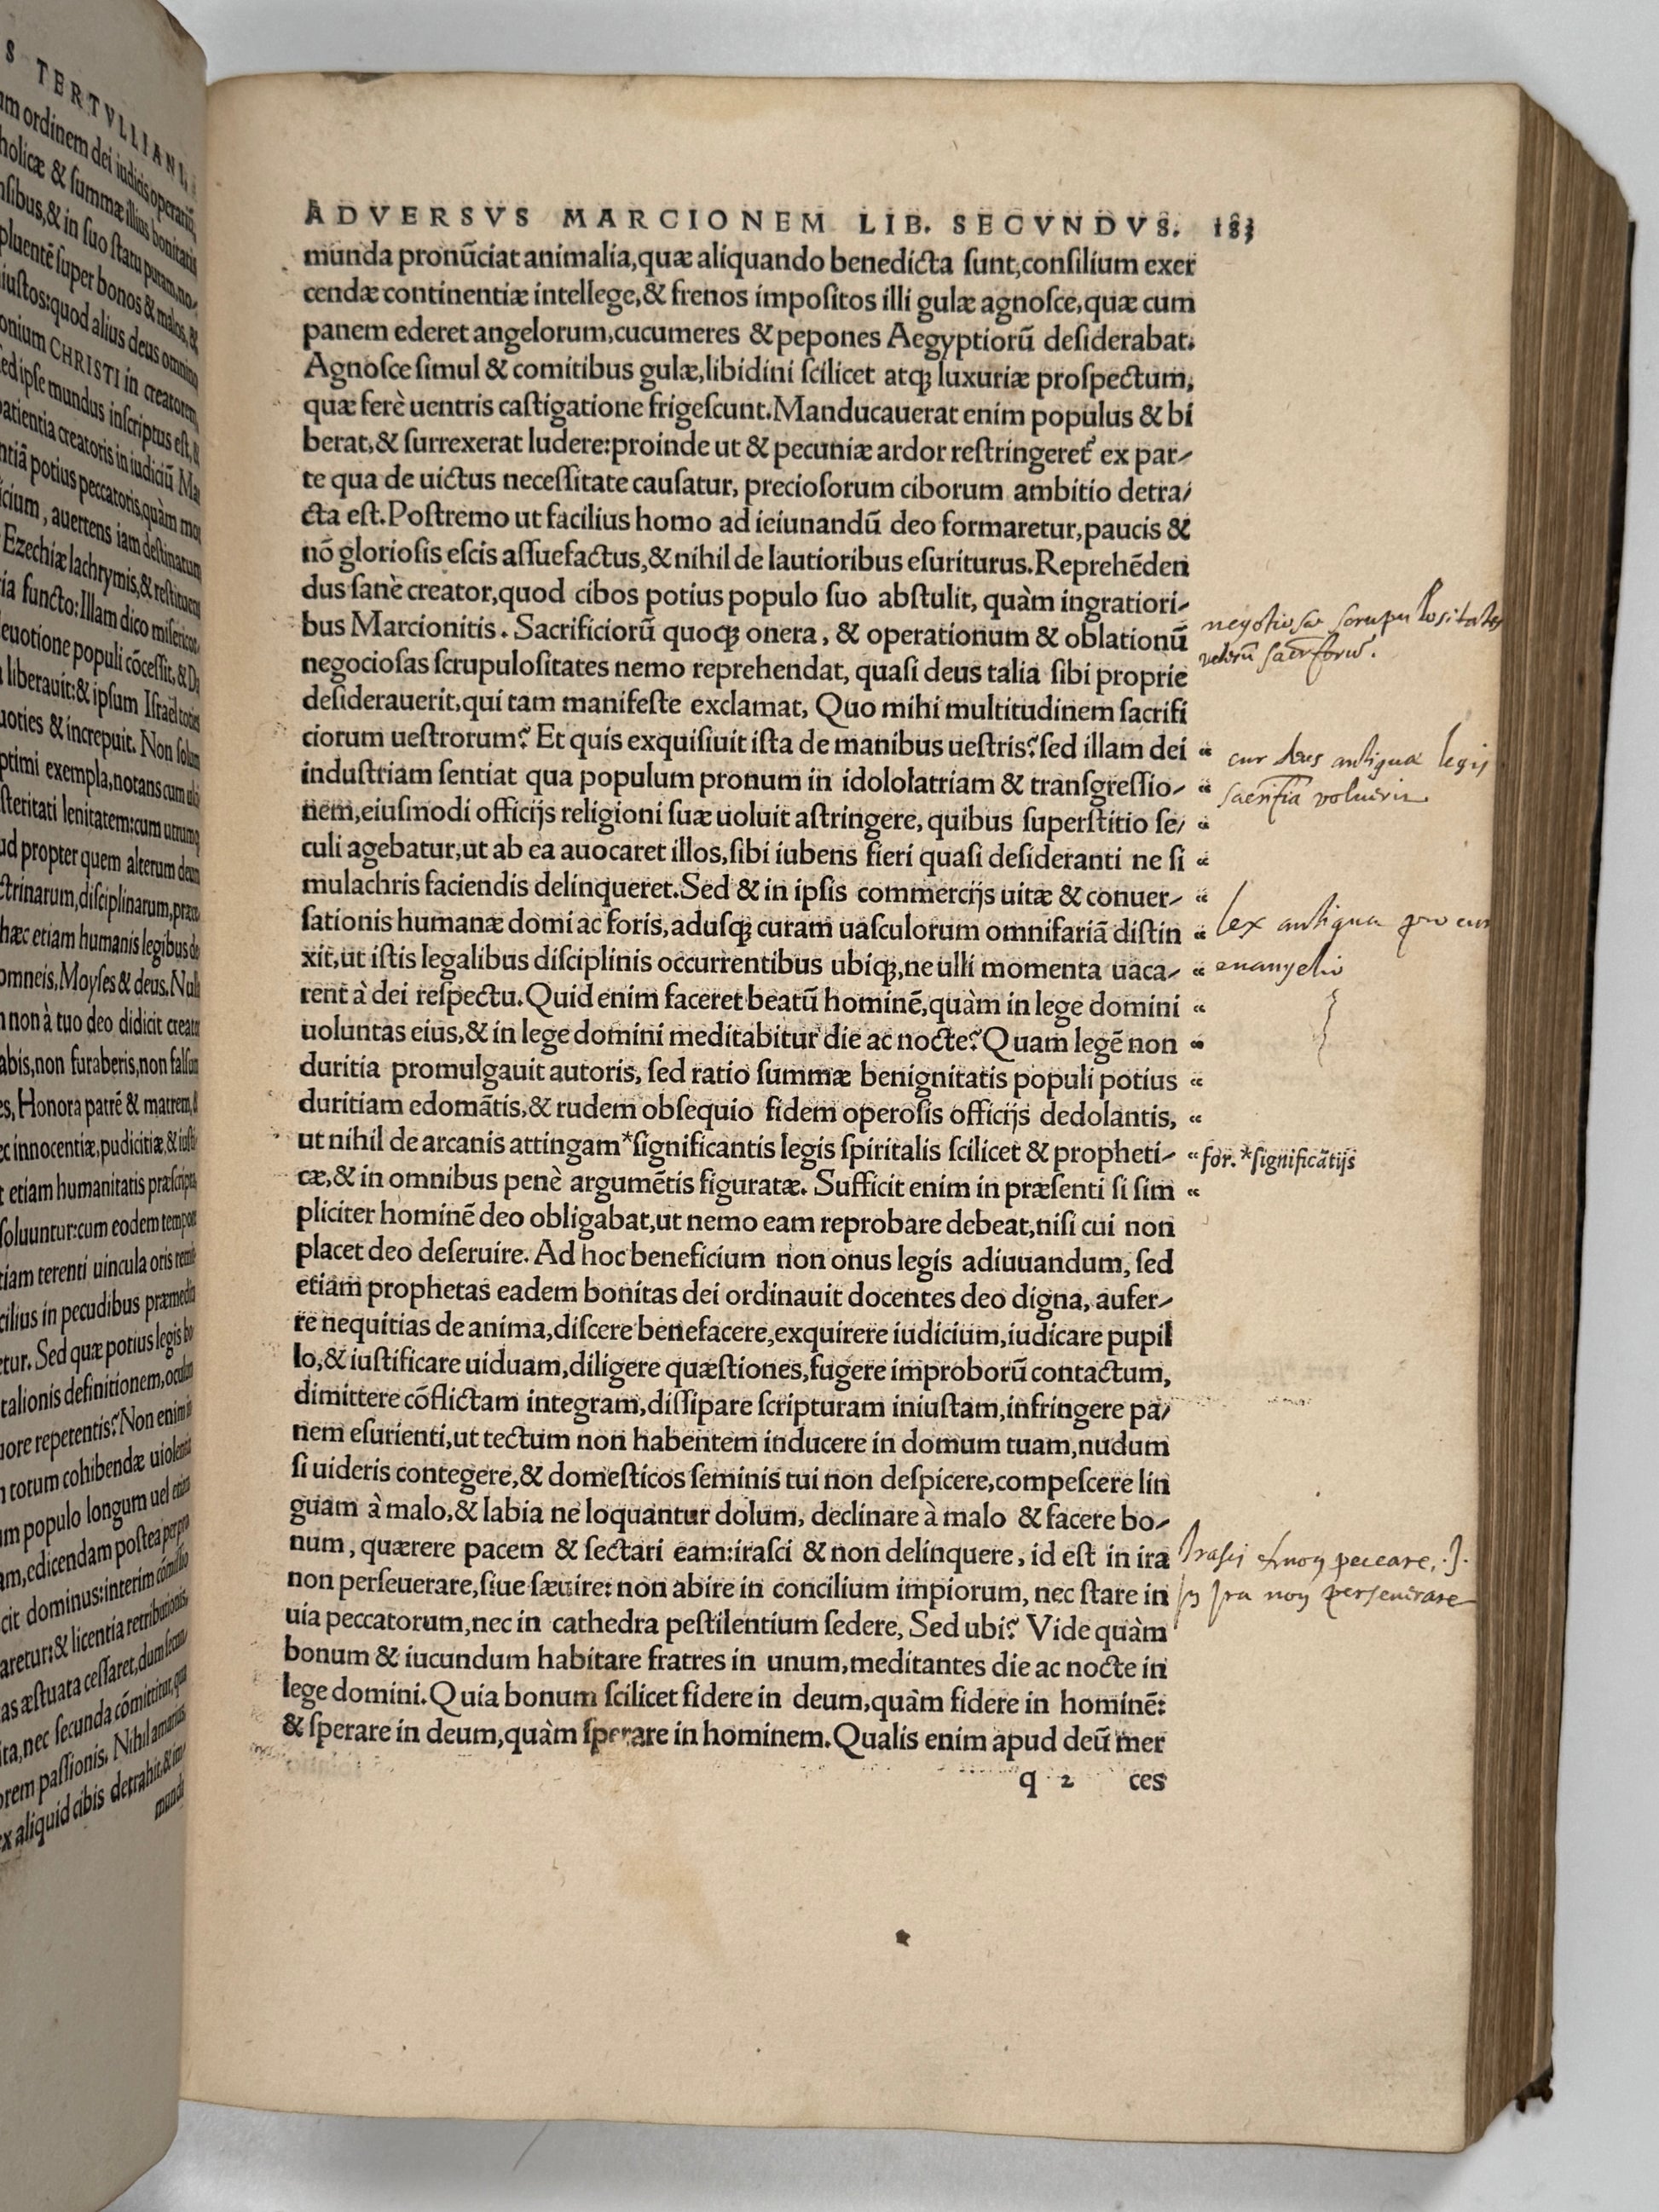 S TERTVLLIANI,
um ordinem dei iudicis operariũ,
holicæ & summæ illius bonitatis
nsibus,& in suo statu puram,no-
pluentē super bonos & malos,&
iustos:quod alius deus omnino
onium CHRISTI in creatorem,
ed ipse mundus inscriptus est,&
patientia creatoris in iudiciũ Ma
ntiã potius peccatoris,quàm mor
icium, auertens iam destinatum
Ezechiæ lachrymis,& restituens
ia functo:Illam dico misericor-
euotione populi cõcessit,& Da
liberauit:& ipsum Israel toties
uoties & increpuit. Non solum
ptimi exempla,notans cum ubi
steritati lenitatem:cum utrumq
ud propter quem alterum deum
ctrinarum,disciplinarum,præce
hæc etiam humanis legibus de
omneis,Moyses & deus. Nulli
n non à tuo deo didicit creator
abis,non furaberis,non falsum
es, Honora patrē & matrem,&
ec innocentiæ,pudicitiæ,& iusti
t etiam humanitatis præscripta,
soluuntur:cum eodem tempore
tiam terenti uincula oris remit
cilius in pecudibus præmedita
etur. Sed quæ potius legis bo
talionis definitionem,oculum
uore repetentis? Non enim in
n totum cohibendæ uiolentiæ
um populo longum uel etiam
am,edicendam postea per pro
cit dominus:interim cõmissio
aretur:& licentia retributionis,
as æstuata cessaret,dum secun
ita,nec secunda cõmittitur,qua
orem passionis. Nihil amarius
ex aliquid cibis detrahit,& im/
mundi
ADVERSVS MARCIONEM LIB. SECVNDVS. 183
munda pronũciat animalia,quæ aliquando benedicta sunt,consilium exer
cendæ continentiæ intellege,& frenos impositos illi gulæ agnosce,quæ cum
panem ederet angelorum,cucumeres & pepones Aegyptiorũ desiderabat.
Agnosce simul & comitibus gulæ,libidini scilicet atqꝫ luxuriæ prospectum,
quæ ferè uentris castigatione frigescunt.Manducauerat enim populus & bi
berat,& surrexerat ludere:proinde ut & pecuniæ ardor restringeret̃ ex par-
te qua de uictus necessitate causatur, preciosorum ciborum ambitio detra/
cta est.Postremo ut facilius homo ad ieiunandũ deo formaretur,paucis &
nõ gloriosis escis assuefactus,& nihil de lautioribus esuriturus.Reprehēden
dus sanè creator,quod cibos potius populo suo abstulit, quàm ingratiori-
bus Marcionitis. Sacrificiorũ quoqꝫ onera, & operationum & oblationũ
negociosas scrupulositates nemo reprehendat, quasi deus talia sibi proprie
desiderauerit,qui tam manifeste exclamat, Quo mihi multitudinem sacrifi
ciorum uestrorum? Et quis exquisiuit ista de manibus uestris?sed illam dei “
industriam sentiat qua populum pronum in idololatriam & transgressio- “
nem,eiusmodi officijs religioni suæ uoluit astringere, quibus superstitio se/ “
culi agebatur,ut ab ea auocaret illos,sibi iubens fieri quasi desideranti ne si “
mulachris faciendis delinqueret.Sed & in ipsis commercijs uitæ & conuer- “
sationis humanæ domi ac foris,adusqꝫ curam uasculorum omnifariã distin “
xit,ut istis legalibus disciplinis occurrentibus ubiqꝫ,ne ulli momenta uaca- “
rent à dei respectu.Quid enim faceret beatũ hominē,quàm in lege domini “
uoluntas eius,& in lege domini meditabitur die ac nocte? Quam legē non “
duritia promulgauit autoris, sed ratio summæ benignitatis populi potius “
duritiam edomãtis,& rudem obsequio fidem operosis officijs dedolantis, “
ut nihil de arcanis attingam*significantis legis spiritalis scilicet & propheti- “
cæ,& in omnibus penè argumētis figuratæ. Sufficit enim in præsenti si sim “
pliciter hominē deo obligabat,ut nemo eam reprobare debeat,nisi cui non
placet deo deseruire. Ad hoc beneficium non onus legis adiuuandum, sed
etiam prophetas eadem bonitas dei ordinauit docentes deo digna, aufer-
re nequitias de anima,discere benefacere,exquirere iudicium,iudicare pupil
lo,& iustificare uiduam,diligere quæstiones,fugere improborũ contactum,
dimittere cõflictam integram,dissipare scripturam iniustam,infringere pa/
nem esurienti,ut tectum non habentem inducere in domum tuam,nudum
si uideris contegere,& domesticos seminis tui non despicere,compescere lin
guam à malo,& labia ne loquantur dolum, declinare à malo & facere bo-
num, quærere pacem & sectari eam:irasci & non delinquere, id est in ira
non perseuerare,siue sæuire: non abire in concilium impiorum, nec stare in
uia peccatorum,nec in cathedra pestilentium sedere, Sed ubi? Vide quàm
bonum & iucundum habitare fratres in unum,meditantes die ac nocte in
lege domini.Quia bonum scilicet fidere in deum,quàm fidere in hominē:
& sperare in deum,quàm sperare in hominem.Qualis enim apud deũ mer
q 2 ces
negotiosæ scrupulositates
veterũ
cur deus antiqua legis
sacrificia voluerit
lex antiqua pro
euangelio
for.*significãtijs
Irasci & non peccare, .i.
in ira non perseuerare